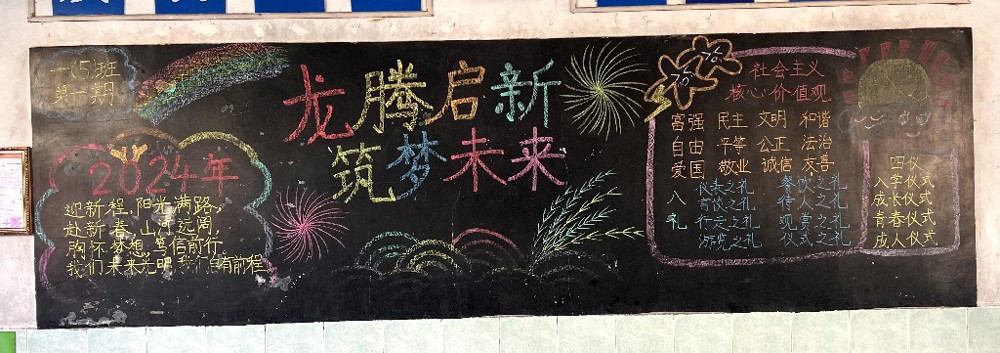 一(5)班
第一期
龙腾启新
筑梦未来
2024年
迎新程,阳光满路,
赴新春,山河远阔,
胸怀梦想,笃信前行,
我们未来光明,我们自有前程
社会主义
核心价值观
富强 民主 文明 和谐
自由 平等 公正 法治
爱国 敬业 诚信 友善
八礼
仪表之礼 餐饮之礼
言谈之礼 待人之礼
行走之礼 观赏之礼
游览之礼 仪式之礼
四仪
入学仪式
成长仪式
青春仪式
成人仪式